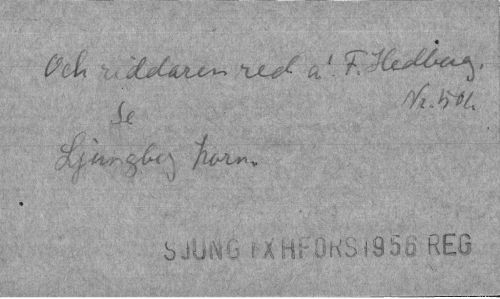 Och riddaren red a'. F. Hedberg.
Nr. 506.
Se
Ljungby horn.
SJUNG FXHFORS 1956 REG